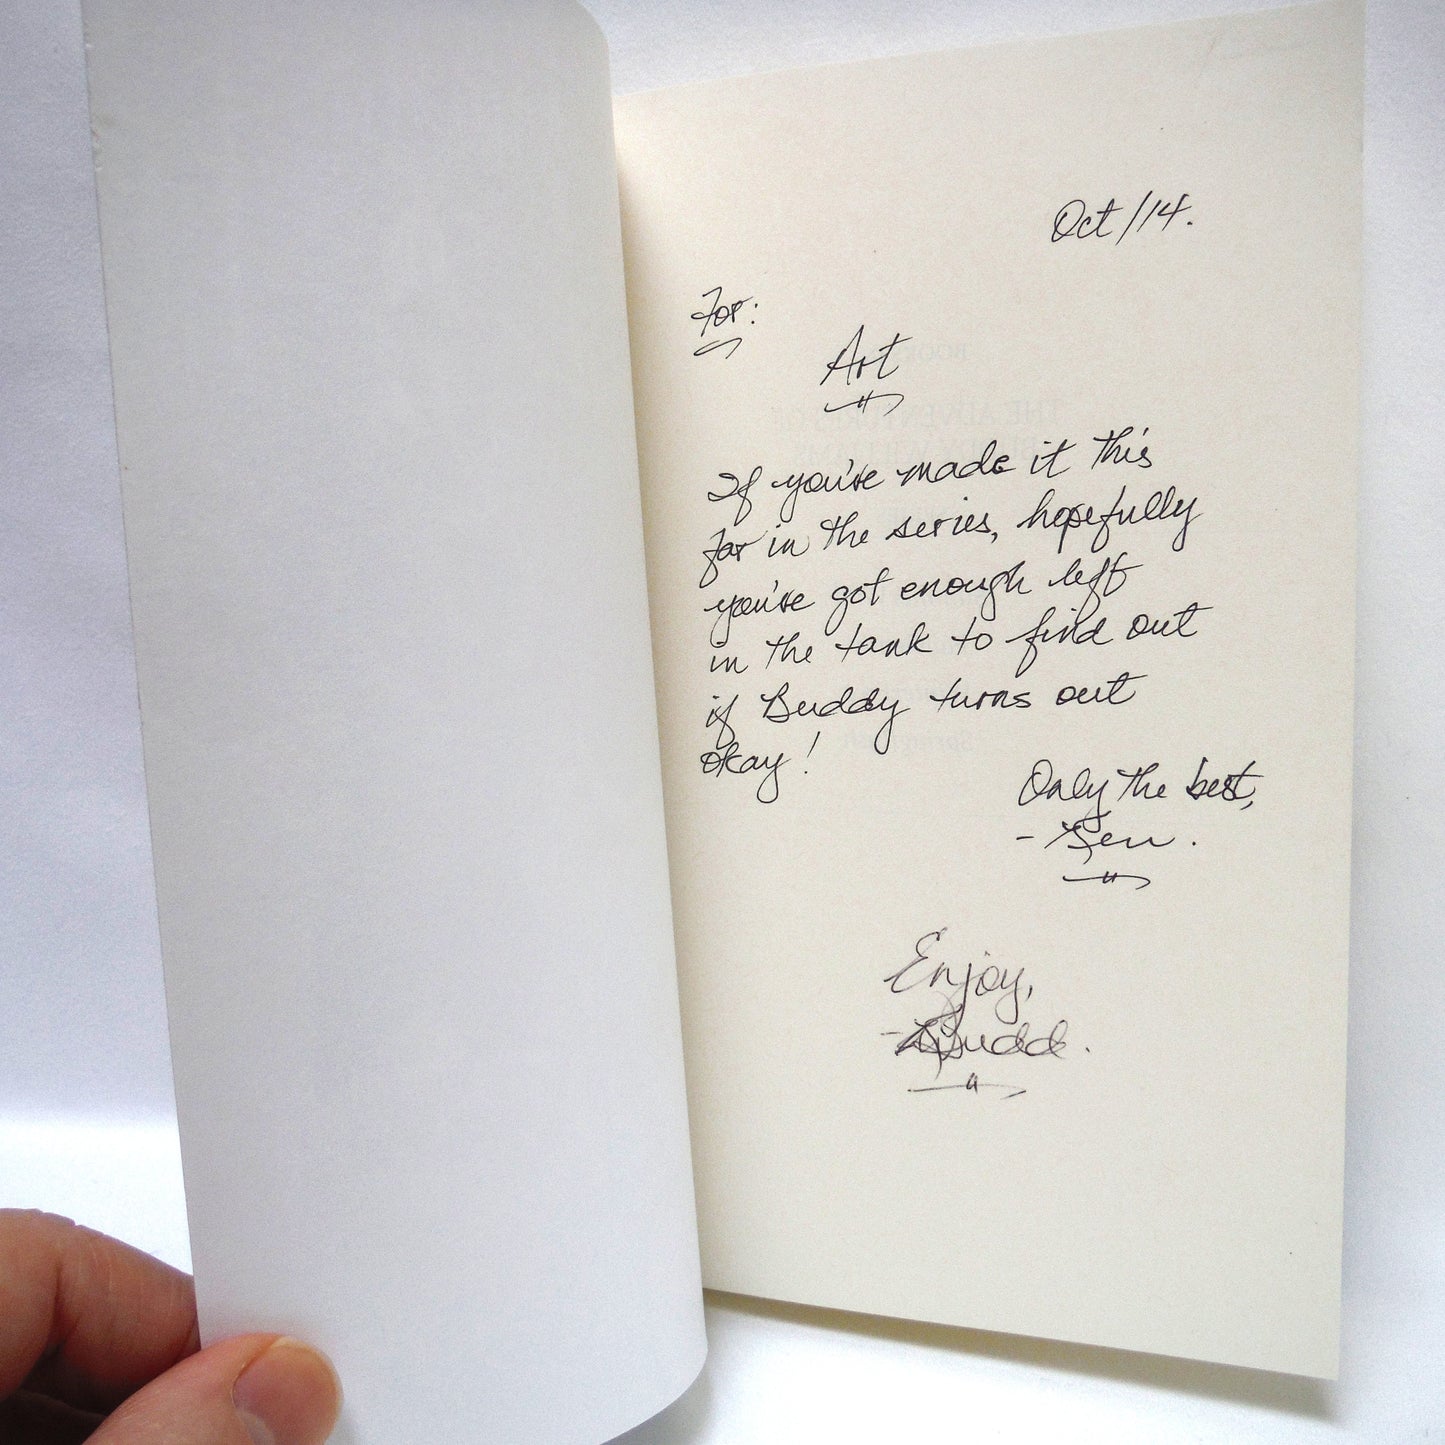 Oct/14.
For:
Art
If you've made it this
far in the series, hopefully
you've got enough left
in the tank to find out
if Buddy turns out
okay!
Only the best,
Enjoy,
-Budd.